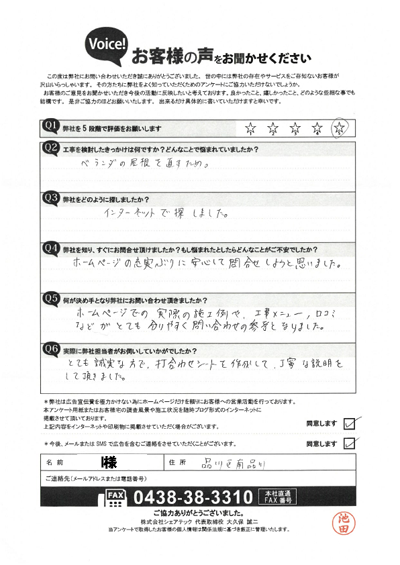 Voice!
お客様の声をお聞かせください
この度は弊社にお問い合わせいただき誠にありがとうございました。世の中には弊社の存在やサービスをご存知ないお客様が
沢山いらっしゃいます。その方たちにも弊社をよく知っていただくためのアンケートにご協力いただけないでしょうか。
お客様のご意見をお聞かせいただき今後の活動に反映したいと考えております。良かったこと、嬉しかったこと、どのような些細な事でも
結構です。是非ご協力のほどお願いいたします。出来るだけ具体的に書いていただけますと幸いです。
Q1 弊社を5段階で評価をお願いします
Q2 工事を検討したきっかけは何ですか?どんなことで悩まれていましたか?
ベランダの屋根を直すため。
Q3 弊社をどのように探しましたか?
インターネットで探しました。
Q4 弊社を知り、すぐにお問合せ頂けましたか?もし悩まれたとしたらどんなことがご不安でしたか?
ホームページの充実ぶりに安心して問合せしようと思いました。
Q5 何が決め手となり弊社にお問い合わせ頂きましたか?
ホームページでの実際の施工例や、工事メニュー、口コミ
などがとても分りやすく問い合わせの参考となりました。
Q6 実際に弊社担当者がお伺いしていかがでしたか?
とても誠実な方で、打合わせシートを作成して、丁寧な説明を
して頂きました。
*弊社は広告宣伝費を極力かけない為にホームページだけを頼りにお客様への営業活動を行っております。
本アンケート用紙またはお客様宅の調査風景や施工状況を随時ブログ形式のインターネットに
掲載させて頂いております。
上記内容をインターネットや印刷物に掲載させていただく場合がございます。 同意します
*今後、メールまたはSMSで広告を含むご連絡をさせていただくことがございます。 同意します
名前 様 住所 品川区南品川
ご連絡先(メールアドレスまたは電話番号)
FAX 0438-38-3310 本社直通 FAX番号
ご協力ありがとうございました。
株式会社シェアテック 代表取締役 大久保 誠二
当アンケートで取得したお客様の個人情報は関係法規に基づき厳正に管理いたします。
池田